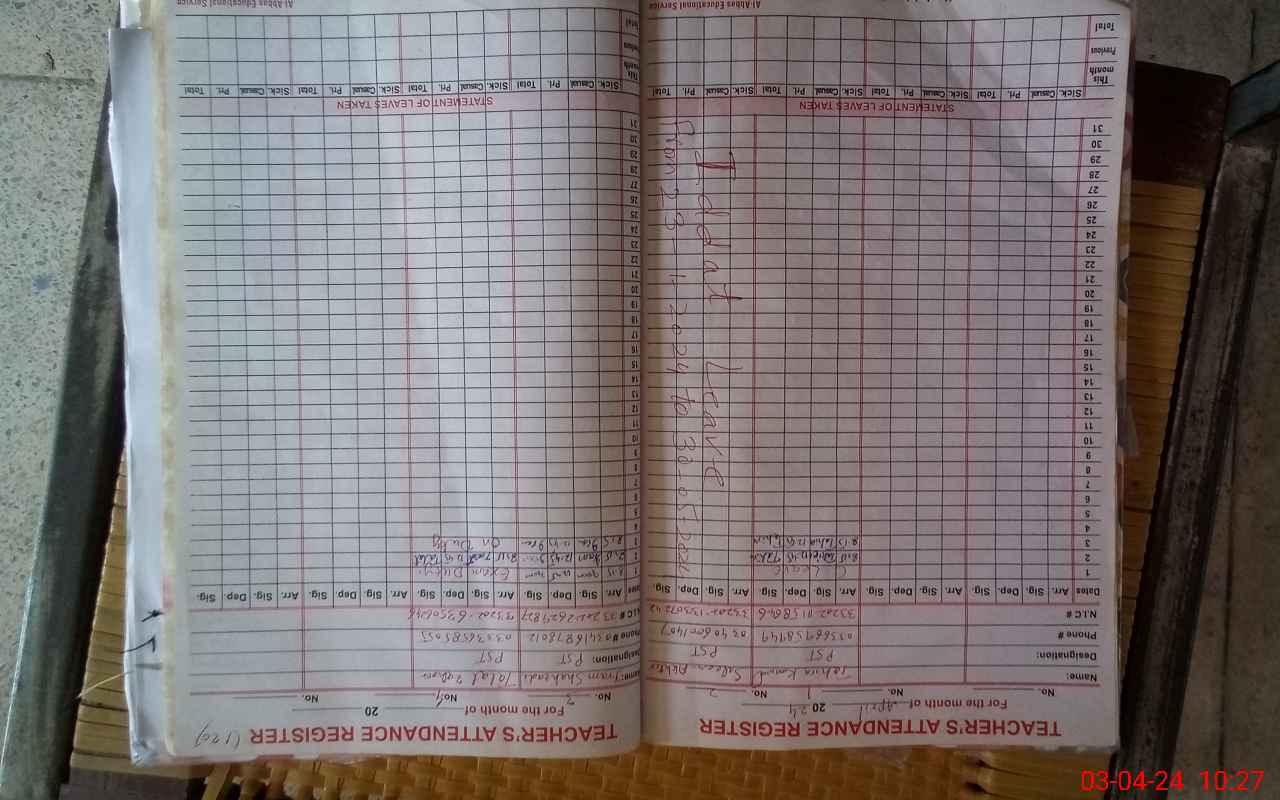 TEACHER'S ATTENDANCE REGISTER
For the month of April 2024
No. No. 1 No. 2
Name: Tahira Saleem Akhtar
Designation: PST PST
Phone #
N.I.C #
Dates Arr. Sig. Dep. Sig. Arr. Sig. Dep. Sig. Arr. Sig. Dep. Sig. Arr. Sig. Dep. Sig.
1 C Leave
2
3
4
5
6
7
8
9
10
11
12
13
14
15
16
17
18
19
20
21
22
23
24
25
26
27
28
29
30
31
Iddat Leave
From 23-1-2024 to 30-05-2024
STATEMENT OF LEAVES TAKEN
Sick. Casual Pri. Total Sick. Casual Pri. Total Sick. Casual Pri. Total Sick. Casual Pri. Total
This month
Previous
Total
Al-Abbas Educational Service
TEACHER'S ATTENDANCE REGISTER
For the month of 20
No. 3 No. 4 No.
Name: Iram Shahzadi Talat
Designation: PST PST
Phone # 03416878012 03336585055
N.I.C #
Arr. Sig. Dep. Sig. Arr. Sig. Dep. Sig. Arr. Sig. Dep. Sig. Arr. Sig. Dep. Sig.
1 8.15 Exam Duty
2
3 8.15 On Duty
4
5
6
7
8
9
10
11
12
13
14
15
16
17
18
19
20
21
22
23
24
25
26
27
28
29
30
31
STATEMENT OF LEAVES TAKEN
Sick. Casual Pri. Total Sick. Casual Pri. Total Sick. Casual Pri. Total Sick. Casual Pri. Total
This month
Previous
Total
Al-Abbas Educational Service
03-04-24 10:27